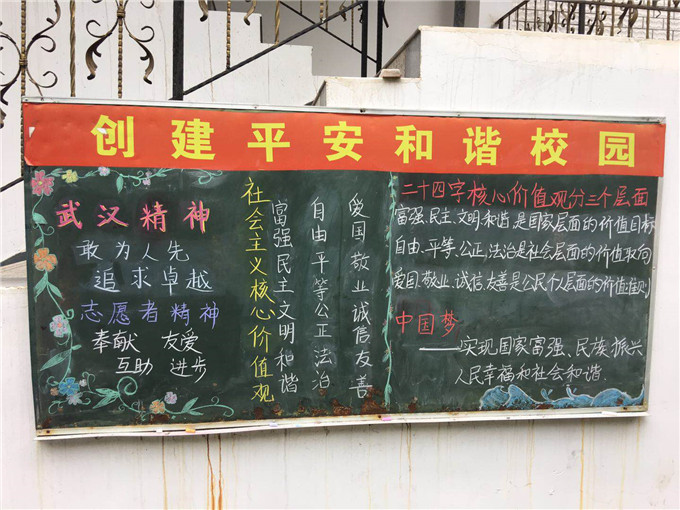 创建平安和谐校园
武汉精神
敢为人先
追求卓越
志愿者精神
奉献 友爱
互助 进步
社会主义核心价值观
富强民主文明和谐
自由平等公正法治
爱国敬业诚信友善
二十四字核心价值观分三个层面
富强、民主、文明、和谐是国家层面的价值目标
自由、平等、公正、法治是社会层面的价值取向
爱国、敬业、诚信、友善是公民个人层面的价值准则
中国梦
——实现国家富强、民族振兴
人民幸福和社会和谐.